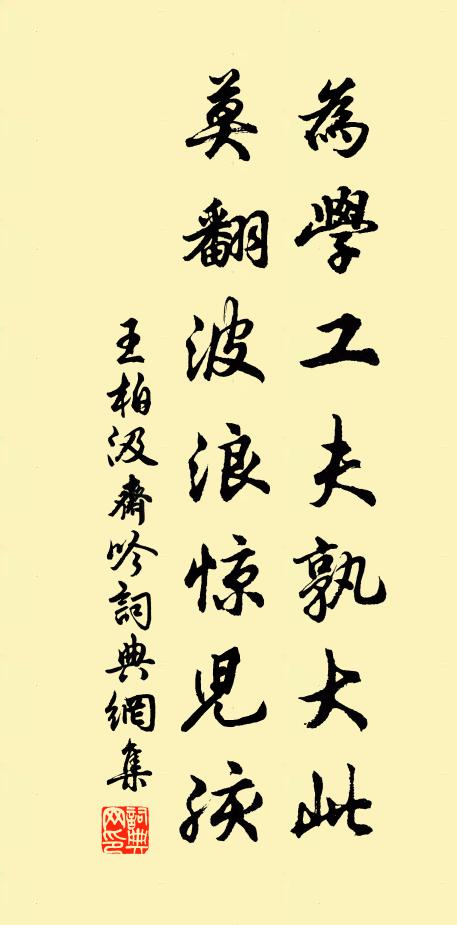 為學工夫孰大此
莫翻波浪惊兒孩
王柏汲齋吟詞典網集
詞典網印